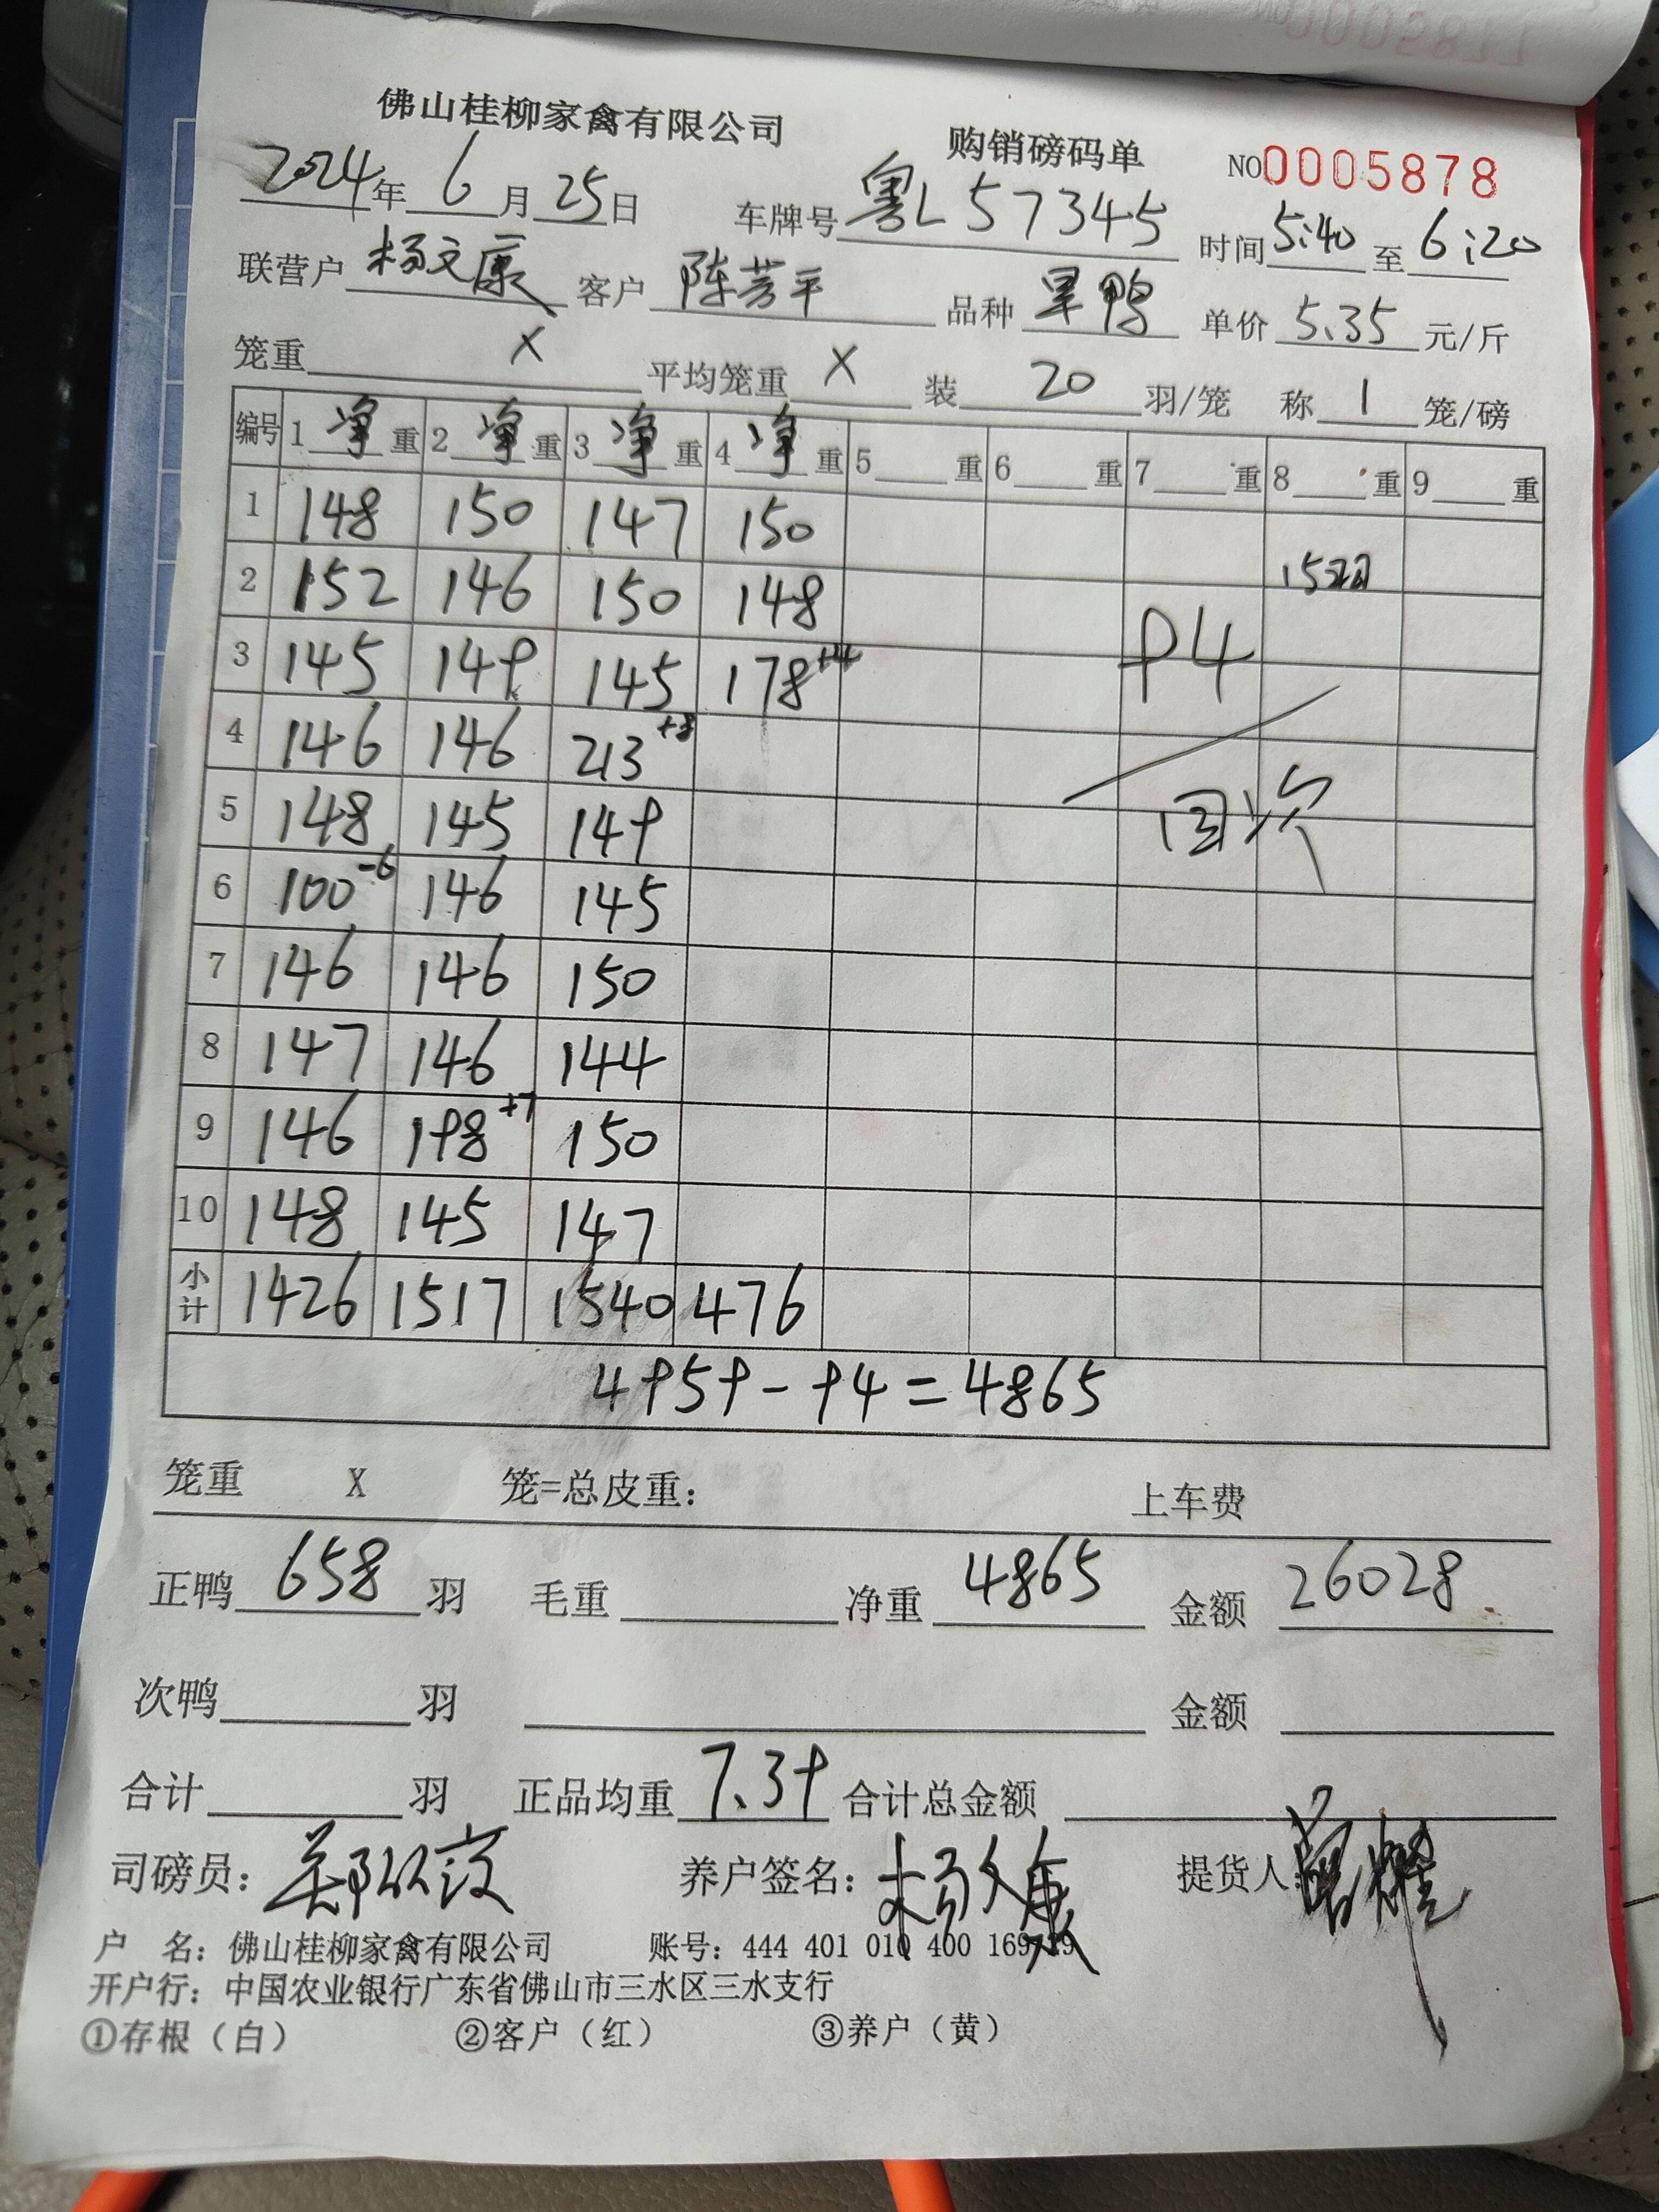 佛山桂柳家禽有限公司 购销磅码单 NO0005878
2024年 6月25日 车牌号 粤L57345 时间 5:40 至 6:20
联营户 杨文康 客户 陈芳平 品种 旱鸭 单价 5.35 元/斤
笼重 X 平均笼重 X 装 20 羽/笼 称 1 笼/磅
编号 1 净 重 2 净 重 3 净 重 4 净 重 5 重 6 重 7 重 8 重 9 重
1 148 150 147 150
2 152 146 150 148 15羽
3 145 149 145 178+4 94
4 146 146 213+3
5 148 145 149 回次
6 100-6 146 145
7 146 146 150
8 147 146 144
9 146 198+7 150
10 148 145 147
小计 1426 1517 1540 476
4959-94=4865
笼重 X 笼=总皮重: 上车费
正鸭 658 羽 毛重 净重 4865 金额 26028
次鸭 羽 金额
合计 羽 正品均重 7.39 合计总金额
司磅员: 养户签名: 杨文康 提货人:
户 名: 佛山桂柳家禽有限公司 账号: 444 401 010 400 169
开户行: 中国农业银行广东省佛山市三水区三水支行
①存根(白) ②客户(红) ③养户(黄)